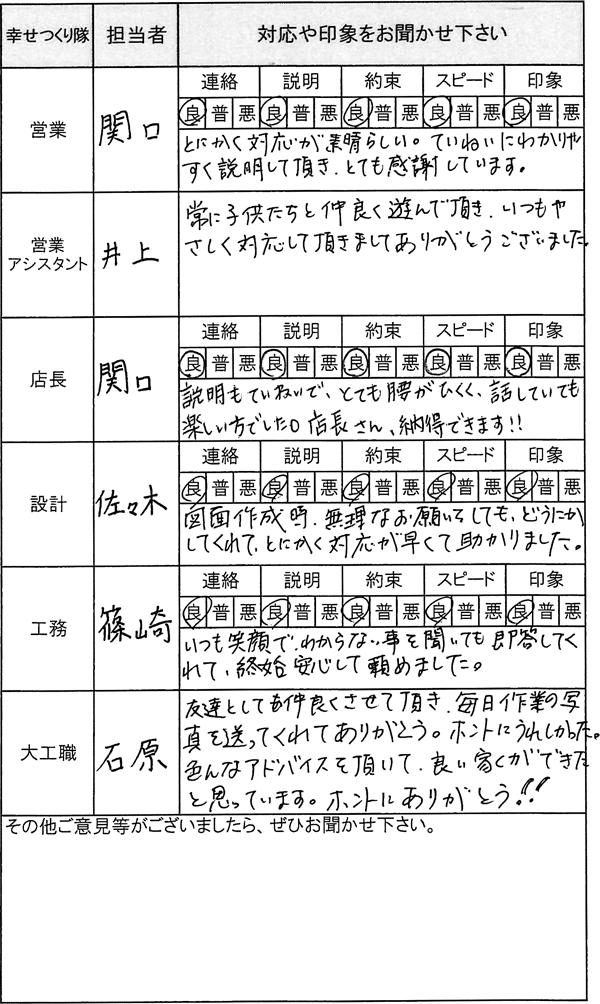 幸せつくり隊 担当者 対応や印象をお聞かせ下さい
営業 関口
連絡 説明 約束 スピード 印象
良 普 悪 良 普 悪 良 普 悪 良 普 悪 良 普 悪
とにかく対応が素晴らしい。ていねいにわかりや
すく説明して頂き、とても感謝しています。
営業
アシスタント
井上
常に子供たちと仲良く遊んで頂き、いつもや
さしく対応して頂きましてありがとうございました。
店長 関口
連絡 説明 約束 スピード 印象
良 普 悪 良 普 悪 良 普 悪 良 普 悪 良 普 悪
説明もていねいで、とても腰がひくく、話していても
楽しい方でした。店長さん、納得できます!!
設計 佐々木
連絡 説明 約束 スピード 印象
良 普 悪 良 普 悪 良 普 悪 良 普 悪 良 普 悪
図面作成時、無理なお願いをしても、どうにか
してくれて、とにかく対応が早くて助かりました。
工務 篠崎
連絡 説明 約束 スピード 印象
良 普 悪 良 普 悪 良 普 悪 良 普 悪 良 普 悪
いつも笑顔で、わからない事を聞いても即答してく
れて、終始安心して頼めました。
大工職 石原
友達としても仲良くさせて頂き、毎日作業の写
真を送ってくれてありがとう。ホントにうれしかった。
色んなアドバイスを頂いて、良い家くができた
と思っています。ホントにありがとう!!
その他ご意見等がございましたら、ぜひお聞かせ下さい。